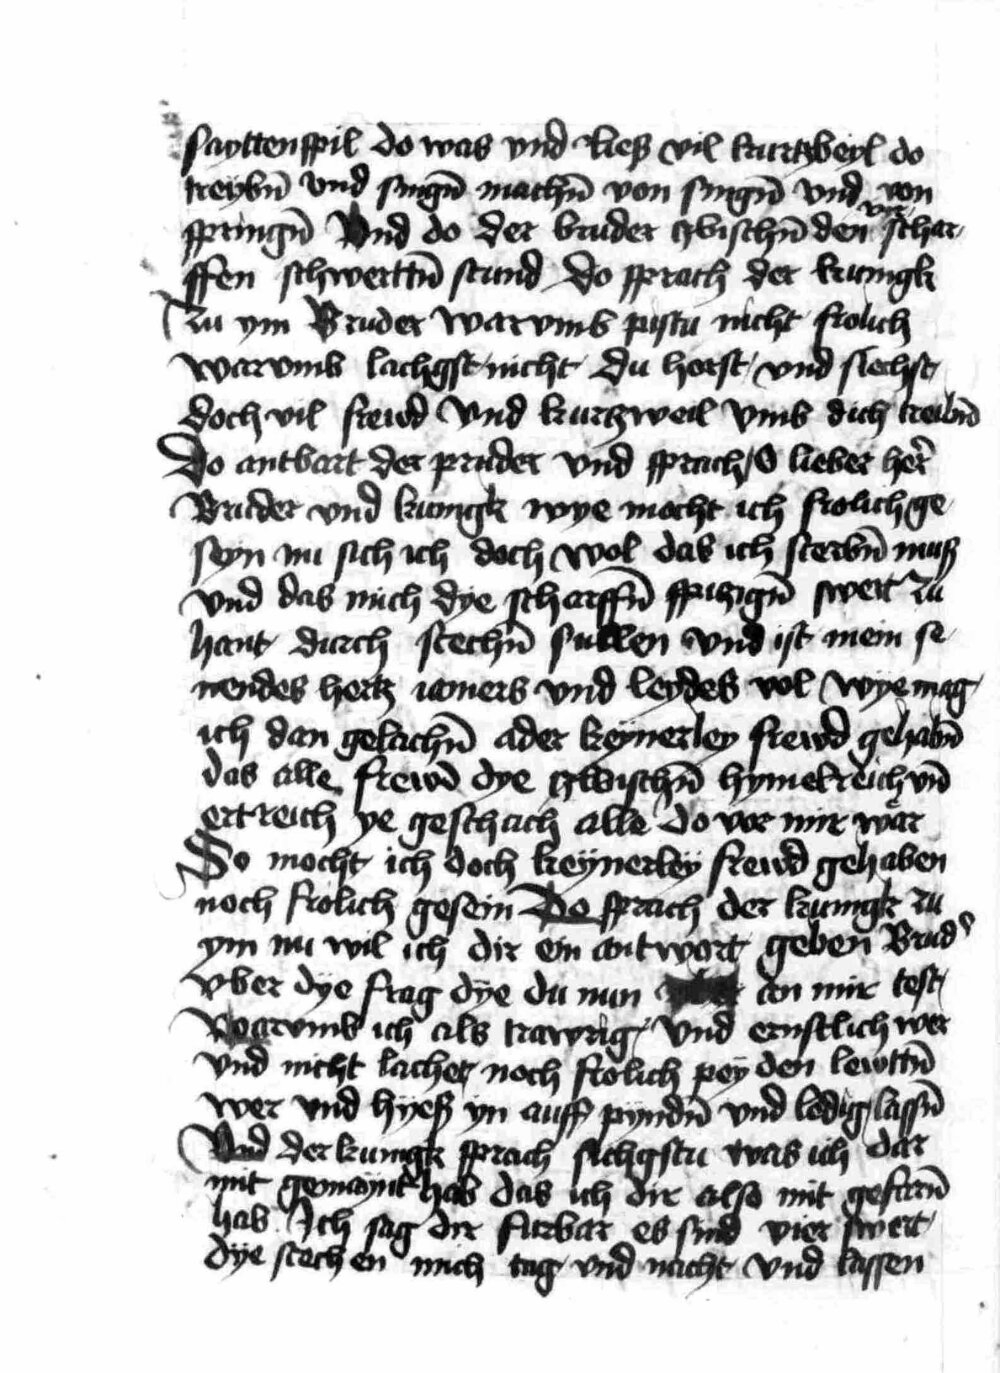 sayttenspil do was vnd ließ vil kurtzbeyl do
treybñ vnd singñ machñ von singñ vnd von
springñ Vnd do der bruder zbischñ den vier schar
ffen schwerttñ stund Do sprach der kunigk
zu ym Bruder warvmb pistu nicht frolich
warvmb lachgst nicht du horst vnd siechst
doch vil frewd vnd kurtzweil vmb dich treibñ
Do antbart der pruder vnd sprach O lieber her̄
Bruder vnd kunigk wye mocht ich frolich ge
seyn nu sich ich doch wol das ich sterbñ muß
vnd das mich dye scharffñ spitzigñ swert zu
hant durch stechñ sullen vnd ist mein se
nendes hertz iamers vnd leydes vol wye mag
ich dan gelachñ ader keynerley frewd gehabñ
das alle frewd dye zwischñ hymelreich vñ
ertreich ye geschach alle do vor mir wär
So mocht ich doch keynerley frewd gehaben
noch frolich gesein Do sprach der kunigk zu
ym nu wil ich dir ein antwort geben Brud'
vber dye frag dye du nun an mir test
Warvmb ich als trawrig vnd ernstlich wer
vnd nicht lachet noch frolich pey den lewttñ
wer vnd hyeß yn auff pyndñ vnd ledig lassñ
Vnd der kunigk sprach sichgstu was ich dar
mit gemaynt hab das ich dir also mit gefarñ
hab Ich sag dir furbar es sind vier swert
dye stechen mich tag vnd nacht vnd lassen